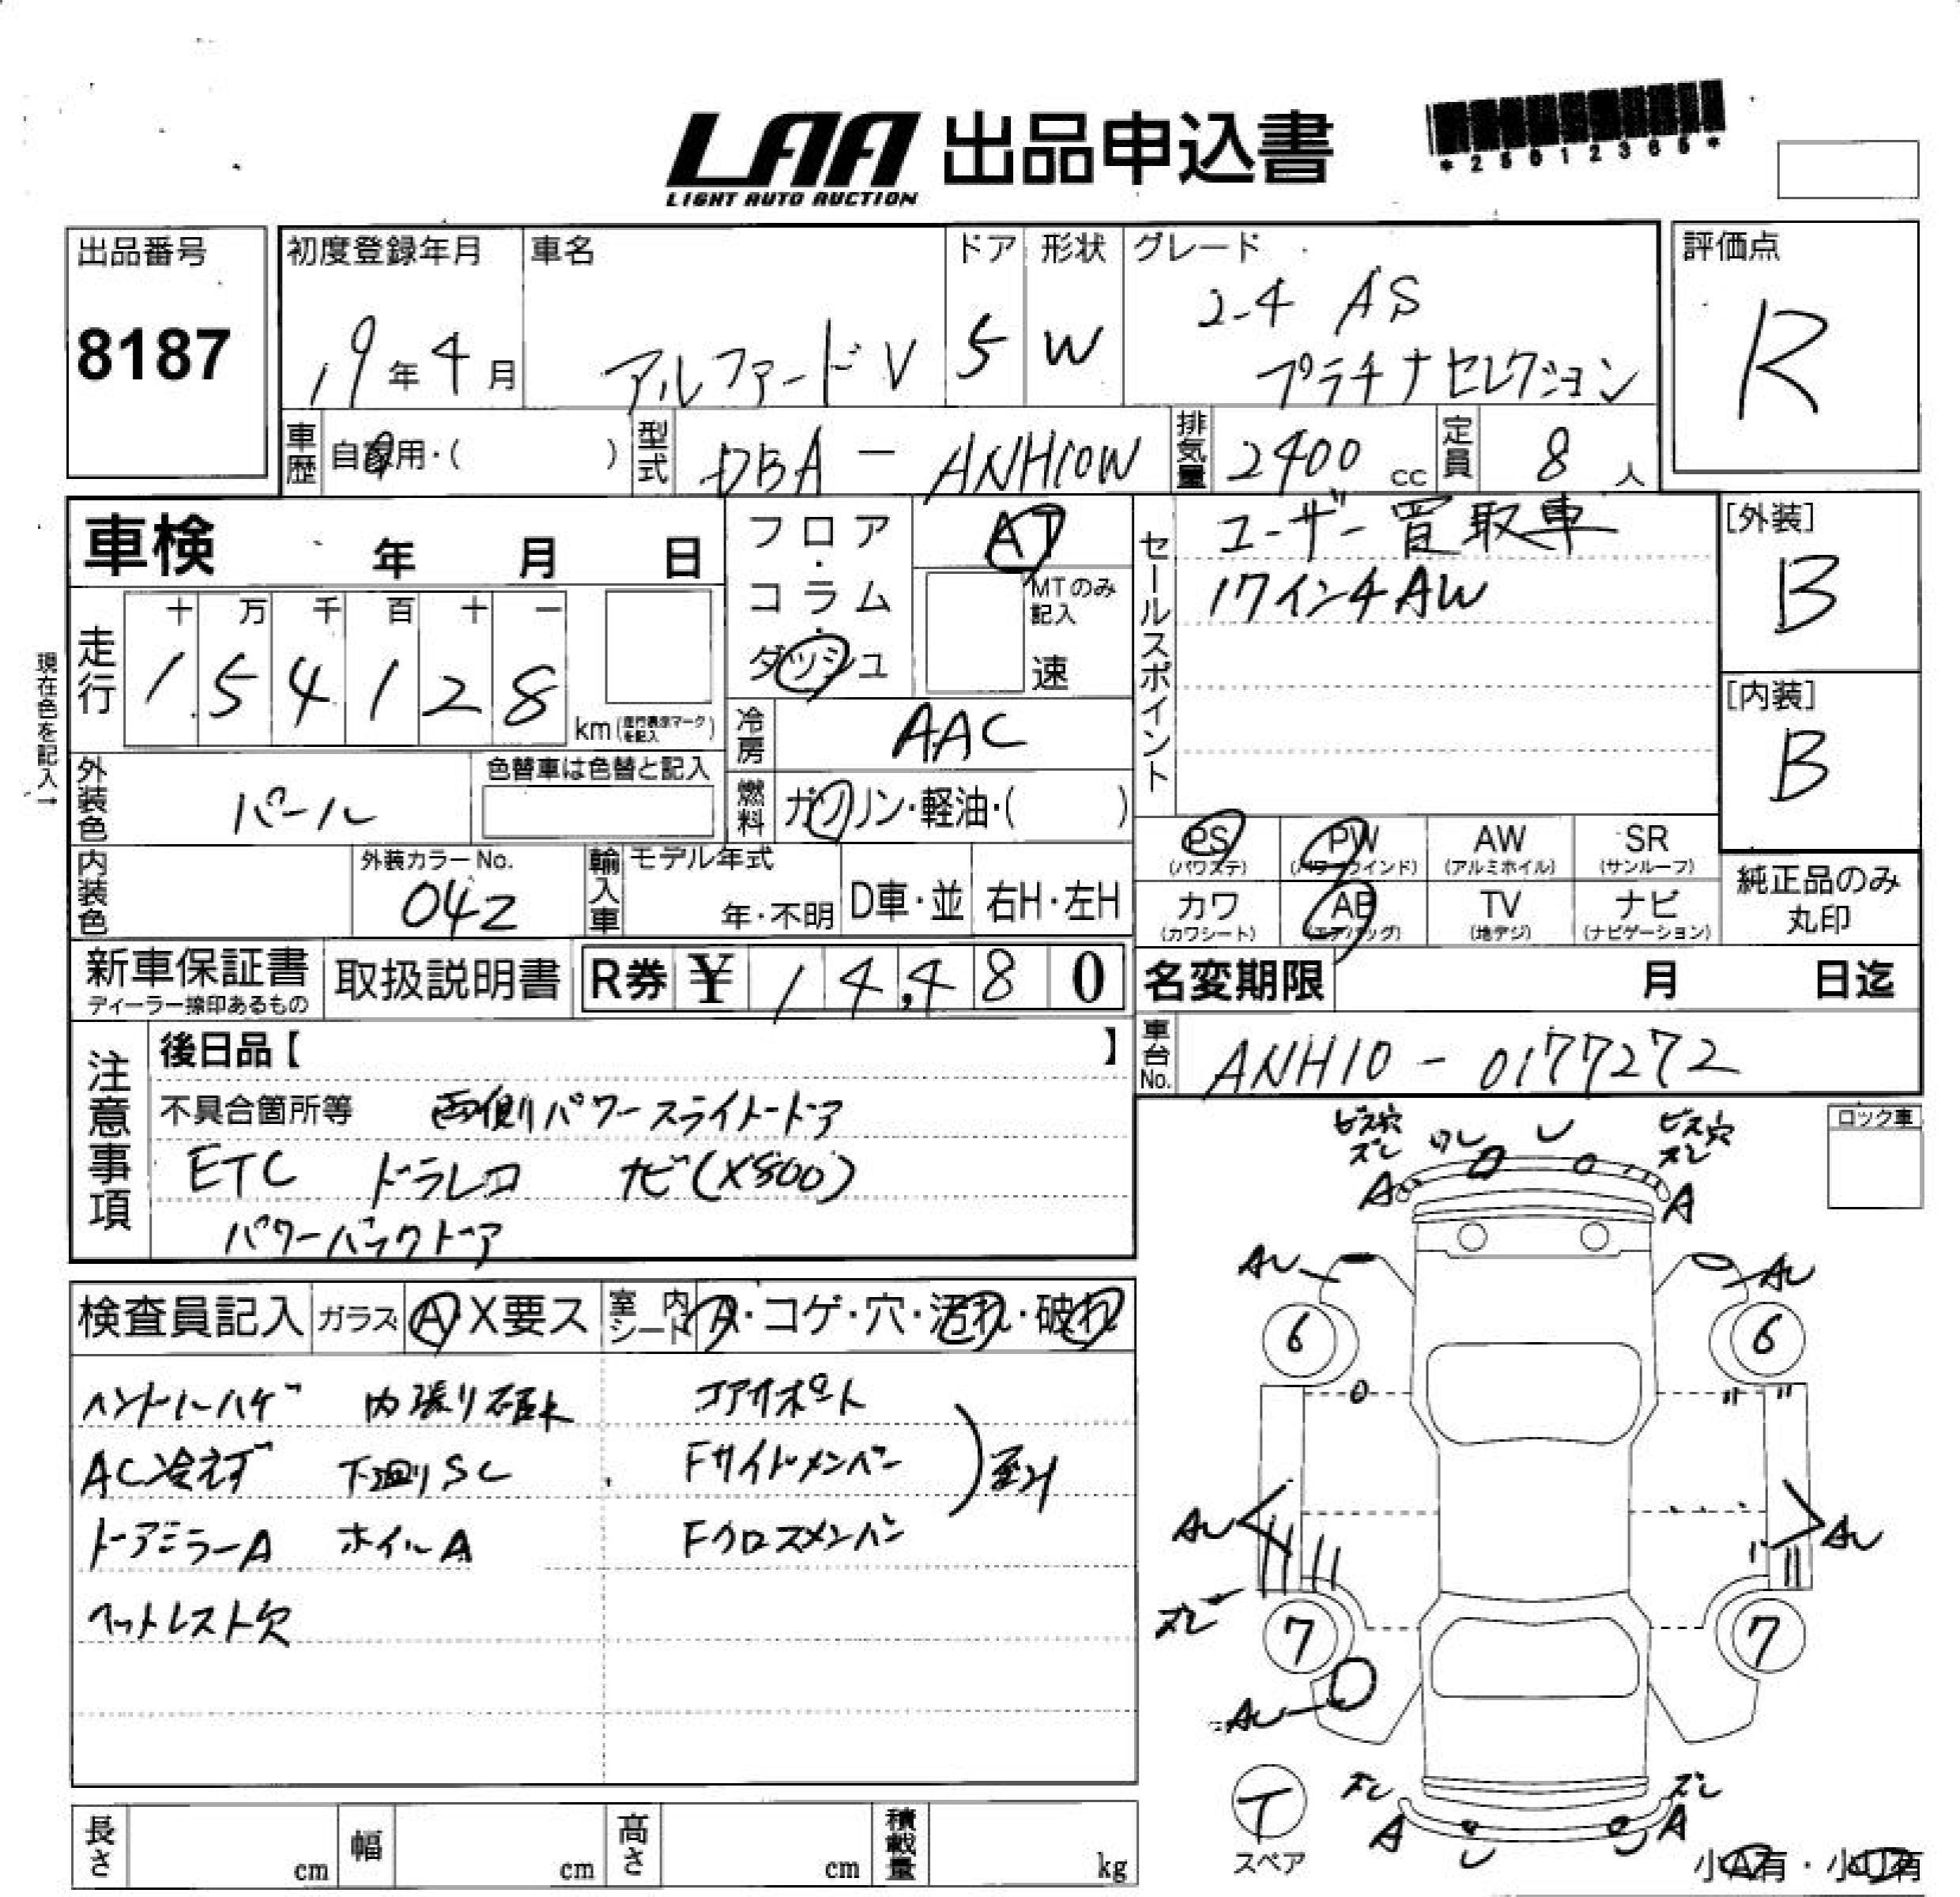 LAA 出品申込書
LIGHT AUTO AUCTION
*25012365*
出品番号
8187
初度登録年月
19年4月
車名
アルファードV
ドア
5
形状
W
グレード
2-4 AS
プラチナセレクション
評価点
R
車歴
自家用・( )
型式
DBA - ANH10W
排気量
2400 cc
定員
8 人
車検 年 月 日
フロア・コラム・ダッシュ
AT
MTのみ記入
速
セールスポイント
ユーザー買取車
17インチAW
[外装]
B
[内装]
B
現在色を記入→
走行
十 万 千 百 十 一
1 5 4 1 2 8
km(走行表示マークを記入)
冷房
AAC
外装色
パール
色替車は色替と記入
燃料
ガソリン・軽油・( )
内装色
外装カラーNo.
042
輸入車
モデル年式
年・不明
D車・並
右H・左H
PS
(パワステ)
PW
(パワーウインド)
AW
(アルミホイル)
SR
(サンルーフ)
カワ
(カワシート)
AB
(エアバッグ)
TV
(地デジ)
ナビ
(ナビゲーション)
純正品のみ
丸印
新車保証書
ディーラー捺印あるもの
取扱説明書
R券 ¥ 1 4,4 8 0
名変期限 月 日迄
車台No.
ANH10 - 0177272
注意事項
後日品【 】
不具合箇所等 両側パワースライドドア
ETC ドラレコ ナビ(X800)
パワーバックドア
ロック車
検査員記入
ガラス A・X要ス
室内シート
A・コゲ・穴・汚れ・破れ
ハンドルハゲ 内張り破れ コアサポート
AC冷えず 下廻りSC Fサイドメンバー
ドアミラーA ホイルA Fクロスメンバー
ヘッドレスト欠
ビス穴 ズレ
ワレ
レ
ビス穴 ズレ
A
A
AU
AU
6
6
AU
AU
ズレ
7
7
AU
T
スペア
ズレ
ズレ
A
レ
A
小A有・小U有
長さ cm
幅 cm
高さ cm
積載量 kg